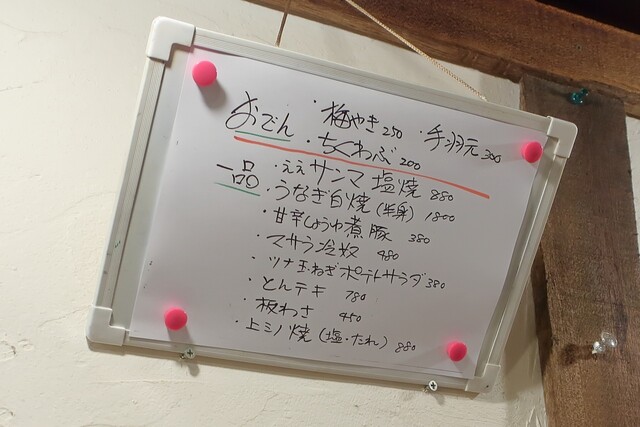 おでん ・梅やき 250 ・手羽元 300
・ちくわぶ 200
一品 ・ええサンマ塩焼 880
・うなぎ白焼(半身) 1800
・甘辛しょうゆ煮豚 380
・マサラ冷奴 480
・ツナ玉ねぎポテトサラダ 380
・とんテキ 780
・板わさ 450
・上ミノ焼(塩・たれ) 880